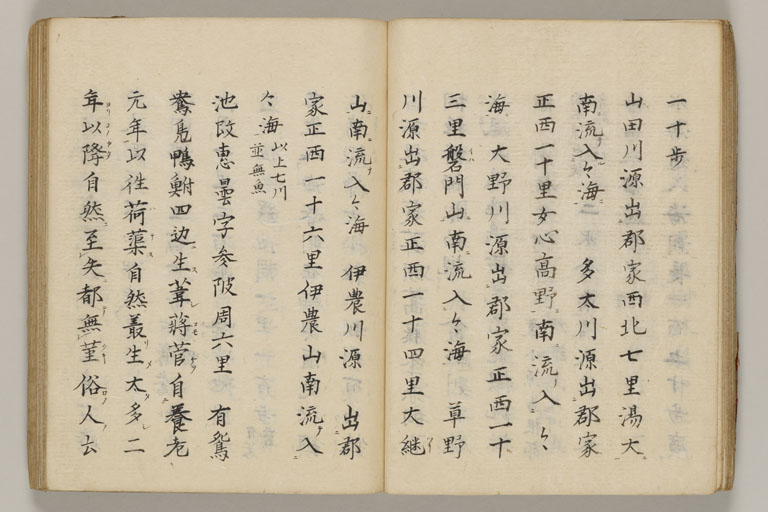 一十歩
山田川源出郡家西北七里湯大
南流入々海　多太川源出郡家
正西一十里女心高野南流入々
海　大野川源出郡家正西一十
三里磐門山南流入々海　草野
川源出郡家正西一十四里大継
山南流入々海　伊農川源出郡
家正西一十六里伊農山南流入
々海以上七川並無魚
池改恵曇字参陂周六里　有鴛
鴦鳬鴨鮒四辺生葦蒋菅自養老
元年以徃荷蕖自然叢生太多二
年以降自然至失都無茎俗人云